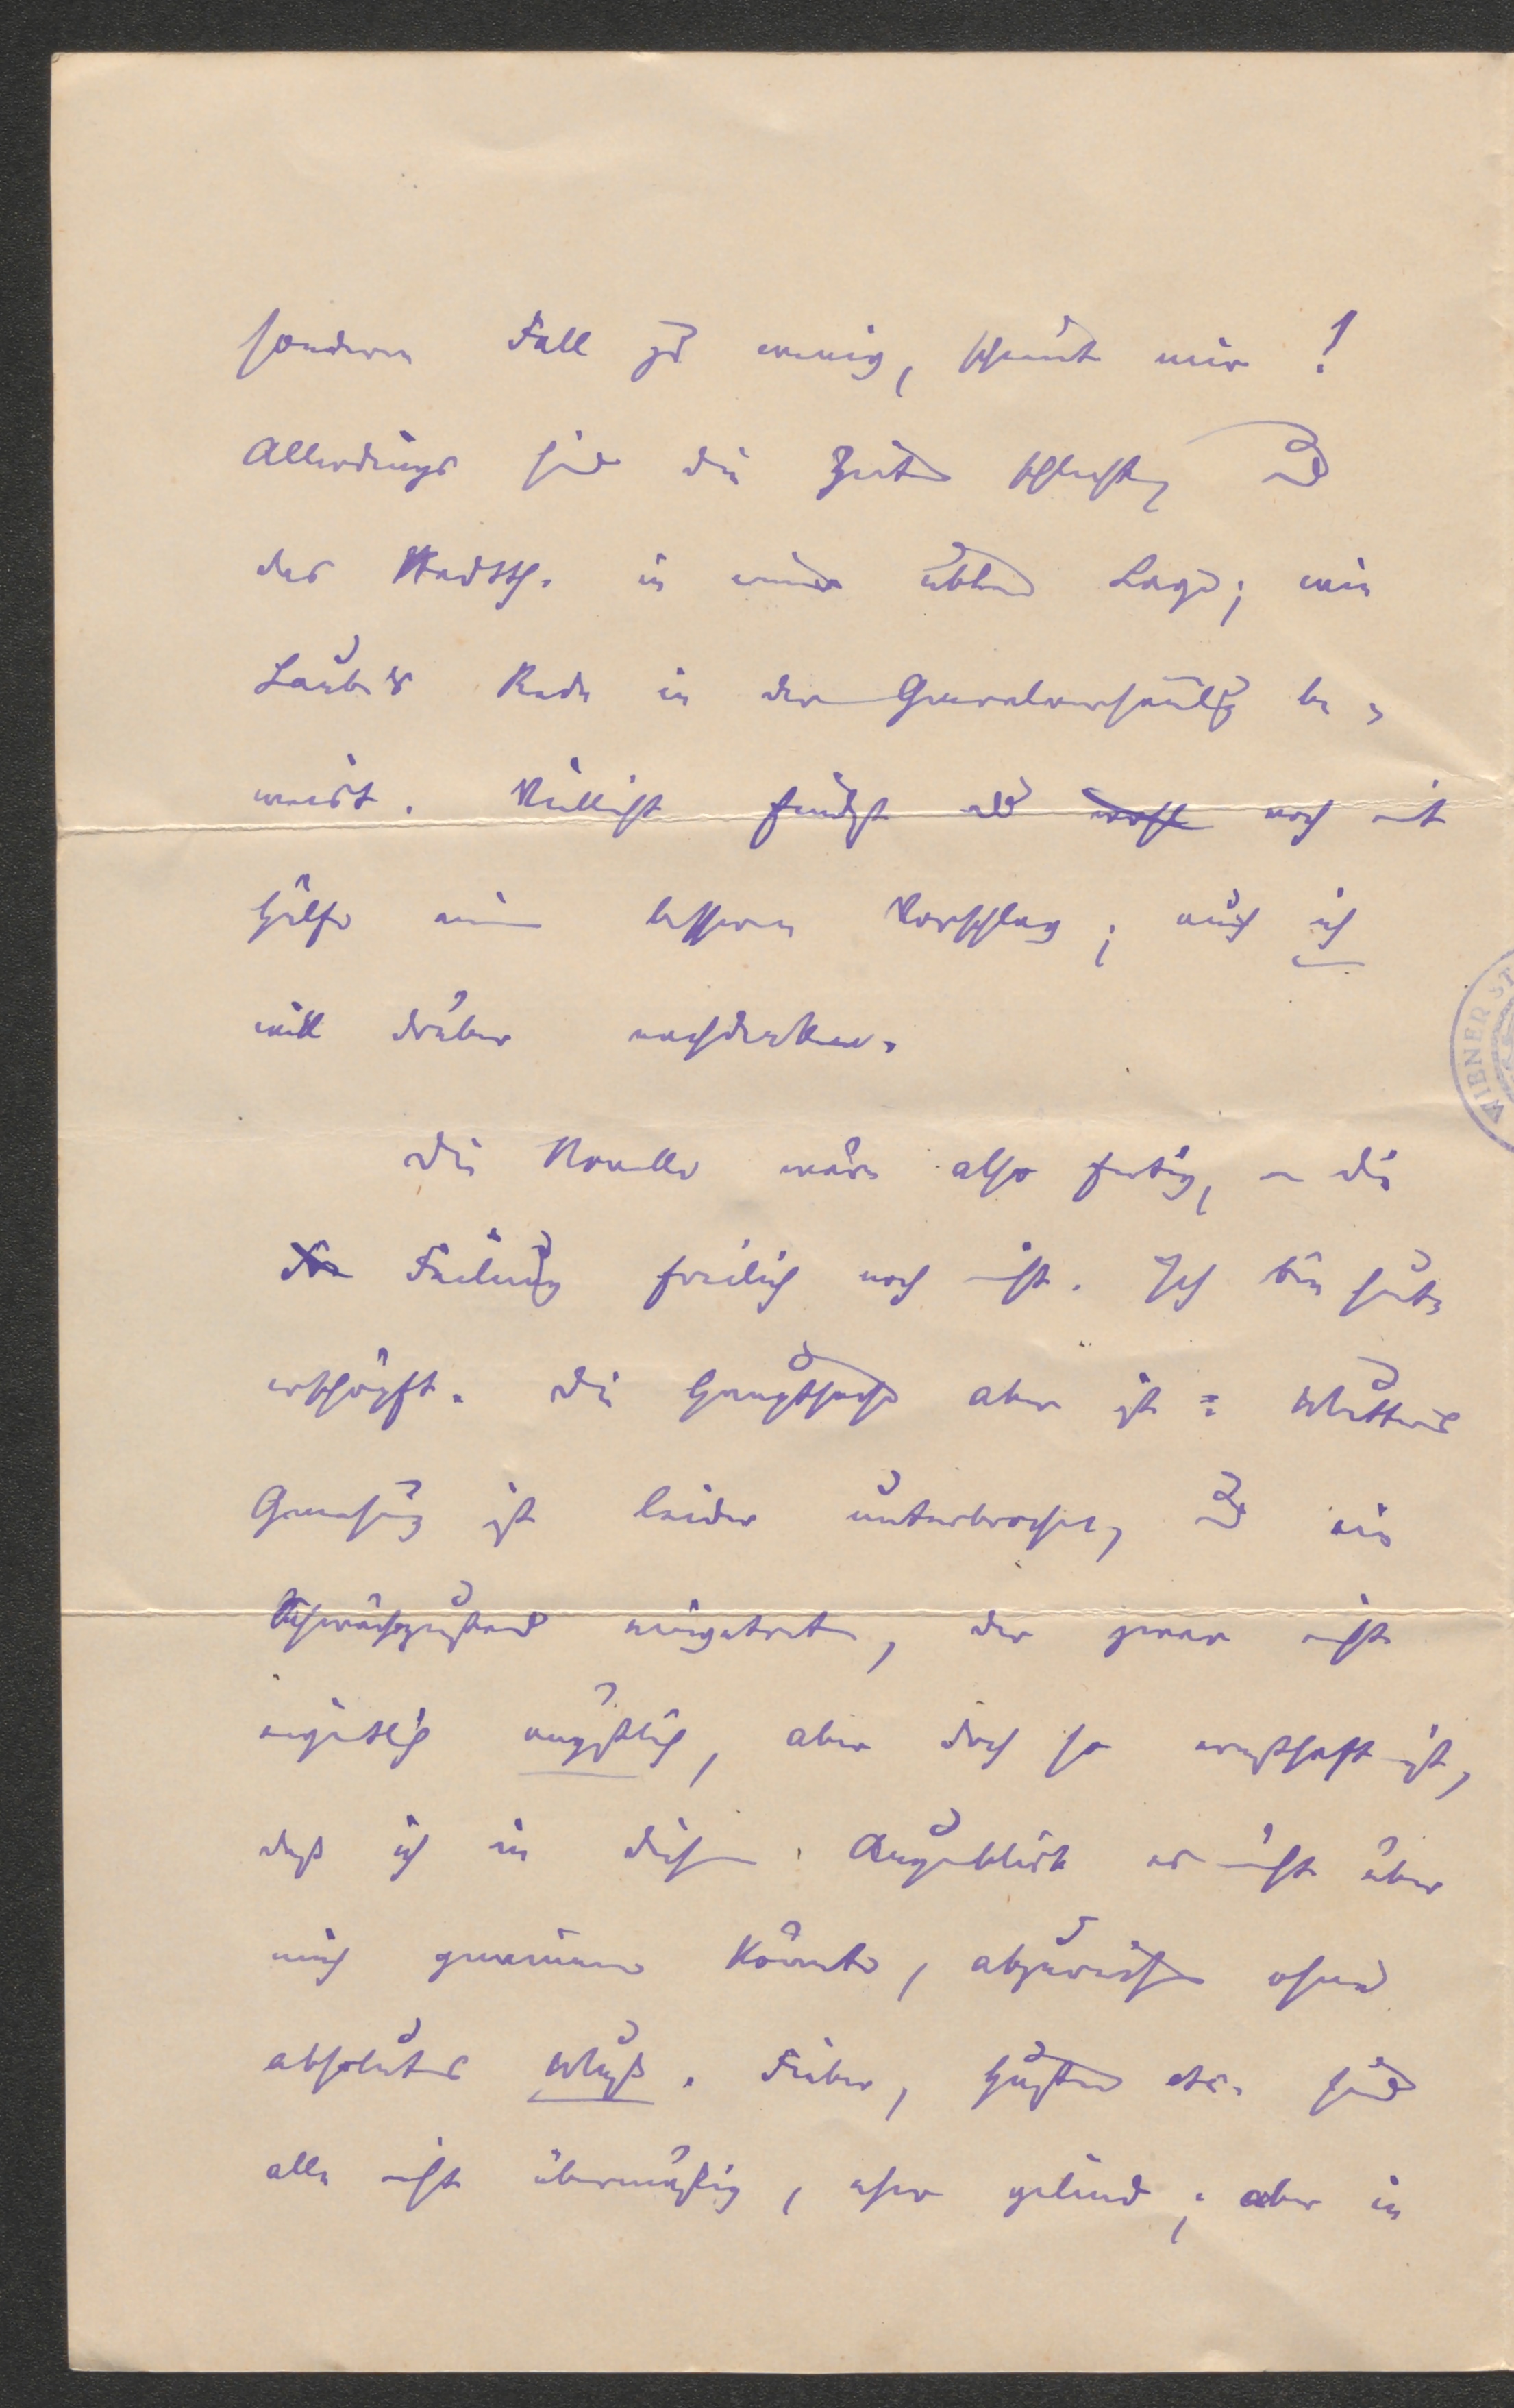 sonderen Fall zu wenig, scheint mir!
Allerdings sind die Zeiten schlecht, und
das Stadtth. in einer üblen Lage; wie
Laube's Rede in der Generalversamlg be-
weist. Vielleicht findest du wohl noch mit
Hülfe einen besseren Vorschlag; auch ich
will drüber nachdenken.
Die Novelle wäre also fertig, – die
Feilung freilich noch nicht. Ich bin heute
erschöpft. Die Hauptsache aber ist: Mutters
Genesung ist leider unterbrochen, und ein
Schwächezustand eingetreten, der zwar nicht
eigentlich ängstlich, aber doch so ernsthaft ist,
daß ich in diesem Augenblick es nicht über
mich gewinnen könnte, abzureisen ohne
absolutes Muß. Fieber, Husten etc. sind
alle nicht übermäßig, eher gelind; aber in
WIENER ST